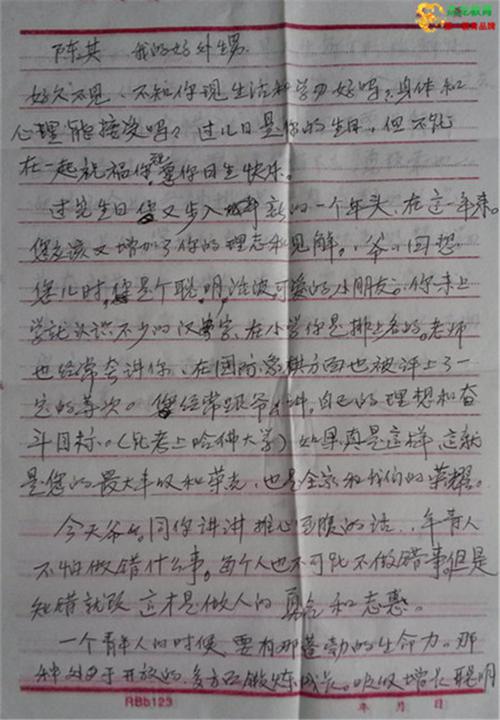 陈其 我的好外甥.
好久不见,不知你现生活和学习好吗?身体和
心理能接受吗?过几日是你的生日,但不能
在一起祝福你,愿你日生快乐。
过完生日您又步入新的一个年头,在这一年来。
您应该又增加了你的理志和见解。爷爷回想
您儿时,您是个聪明活波可爱的小朋友。你未上
学就认识不少的汉字,在小学你是排上名的。老师
也经常夸讲你,在国际象棋方面也被评上了一
定的等次。您经常跟爷爷讲,自己的理想和奋
斗目标。(能考上哈佛大学)如果真是这样,这就
是您的最大丰收和荣光,也是全家和我们的荣耀。
今天爷爷同你讲讲推心至腹的话,年青人
不怕做错什么事。每个人也不可能不做错事。但是
知错就改 这才是做人的真
一个青年人的时候,要有那蓬勃的生命力。那
种对于开放的,多方面锻炼成长。吸收增长聪明
RBb123
年 月 日
第一教育品牌